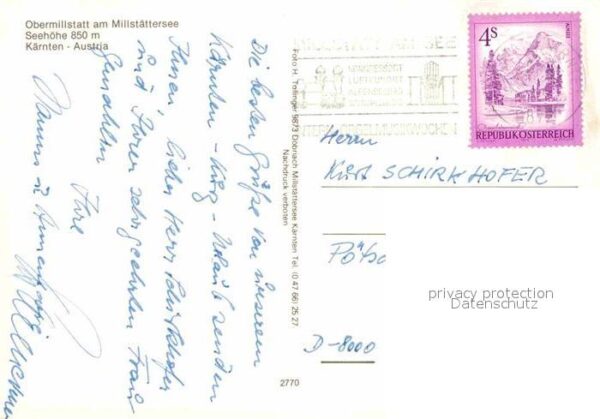 Obermillstatt am Millstättersee
Seehöhe 850 m
Kärnten - Austria
Die besten Grüße von unserem
Kärnten - Kurz - Urlaub senden
Ihnen, lieber Herr Schirkhofer
und Ihrer sehr geehrten Frau
Gemahlin Ihre
Foto H. Tollinger 9873 Döbriach Millstättersee Kärnten Tel. (0 47 66) 25 27
Nachdruck verboten
2770
4 S
REPUBLIK ÖSTERREICH
Herrn
Kurt SCHIRKHOFER
D-8000
privacy protection
Datenschutz